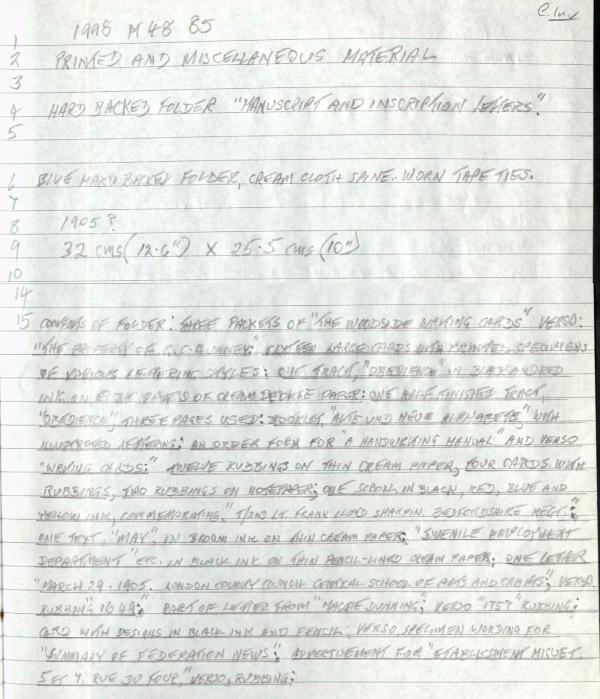 C Inv
1 1998 M 48 85
2 PRINTED AND MISCELLANEOUS MATERIAL
3
4 HARD BACKED FOLDER "MANUSCRIPT AND INSCRIPTION LETTERS."
5
6 BLUE HARD BACKED FOLDER, CREAM CLOTH SPINE. WORN TAPE TIES.
7
8 1905?
9 32 cms (12.6") X 25.5 cms (10")
10
14
15 CONTENTS OF FOLDER: THREE PACKETS OF "THE WOODSIDE WRITING CARDS" VERSO:
"THE PROPERTY OF SIXTEEN LARGE CARDS WITH PRINTED SPECIMENS
OF VARIOUS LETTERING STYLES: ONE TRACT, "OBEDIENCE" IN BLACK AND RED
INK ON EIGHT PAGES OF CREAM DECKLE PAPER: ONE HALF FINISHED TRACT,
"OBEDIENCE", THREE PAGES USED: BOOKLET "ALTE UND NEUE ALPHABETE," WITH
ILLUSTRATED LETTERING; AN ORDER FORM FOR "A HANDWRITING MANUAL" AND VERSO
"WRITING CARDS:" TWELVE RUBBINGS ON THIN CREAM PAPER, FOUR CARDS WITH
RUBBINGS, TWO RUBBINGS ON NOTEPAPER; ONE SCROLL IN BLACK, RED, BLUE AND
YELLOW INK, COMMEMORATING, LT. FRANK LLOYD SHARPIN. BEDFORDSHIRE REGT.";
ONE TEXT. "MAY", IN BROWN INK ON THIN CREAM PAPER; "JUVENILE EMPLOYMENT
DEPARTMENT" ETC. IN BLACK INK ON THIN PENCIL-LINED CREAM PAPER; ONE LETTER
"MARCH 29. 1905. LONDON COUNTY COUNCIL CENTRAL SCHOOL OF ARTS AND CRAFTS"; VERSO
RUBBING "1649;" PART OF LETTER FROM VERSO "1757" RUBBING;
CARD WITH DESIGNS IN BLACK INK AND PENCIL: VERSO SPECIMEN WORDING FOR
"SUMMARY OF FEDERATION NEWS"; ADVERTISEMENT FOR
5 ET 7. RUE DU FOUR," VERSO, RUBBING;